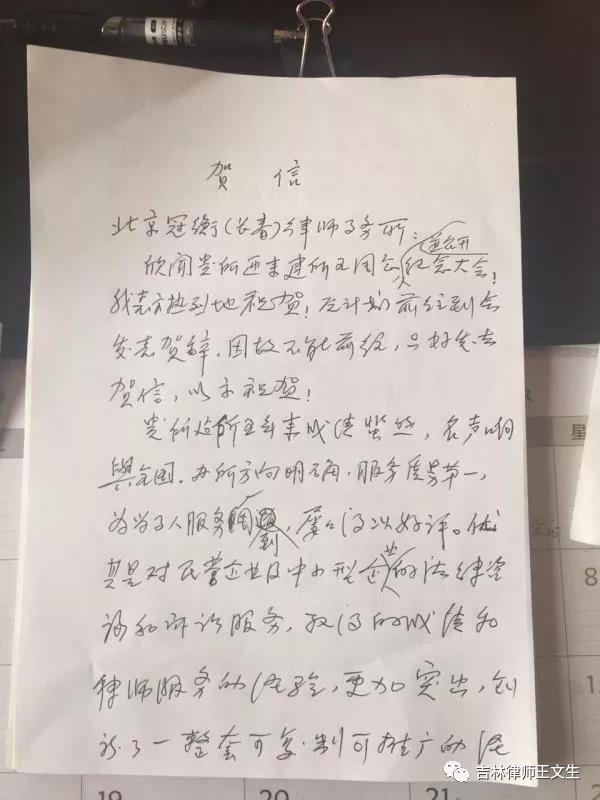 贺 信
北京冠衡(长春)律师事务所:
欣闻贵所迎来建所五周年纪念大会!
召开
我表示热烈地祝贺!原计划前往到会
发表贺辞,因故不能前往,只好发去
贺信,以示祝贺!
贵所建所五年来成绩斐然,名声响
全国。办所方向明确,服务质量第一,
为当事人服务周到,屡屡得以好评。尤
其是对民营企业及中小型企业的法律咨
询和诉讼服务,取得的成绩和
律师服务的经验,更加突出,创
设了一整套可复制可推广的经
19 20 21
吉林律师王文生